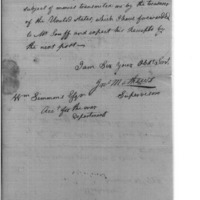 subject of monies transmitted me by the treasurer
of the United States, which I have forwarded
to Mr and expect his Receipts by
the next post —
I am Sir Your Obdt Servt
Jno
Supervisor
Wm Simmons Esqr
Acct for the war
Department